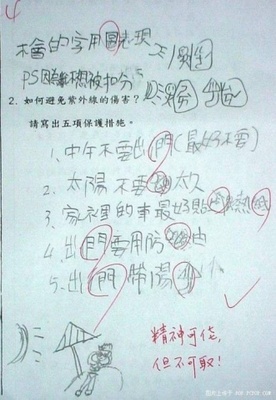 4
不會的字用圖表現
PS因為不想被扣分
2. 如何避免紫外線的傷害?
請寫出五項保護措施。
1、中午不要出門(最好不要)
2、太陽不要太久
3、家裡的車最好貼熱紙
4、出門要用防油
5、出門帶陽傘
精神可佳,
但不可取!